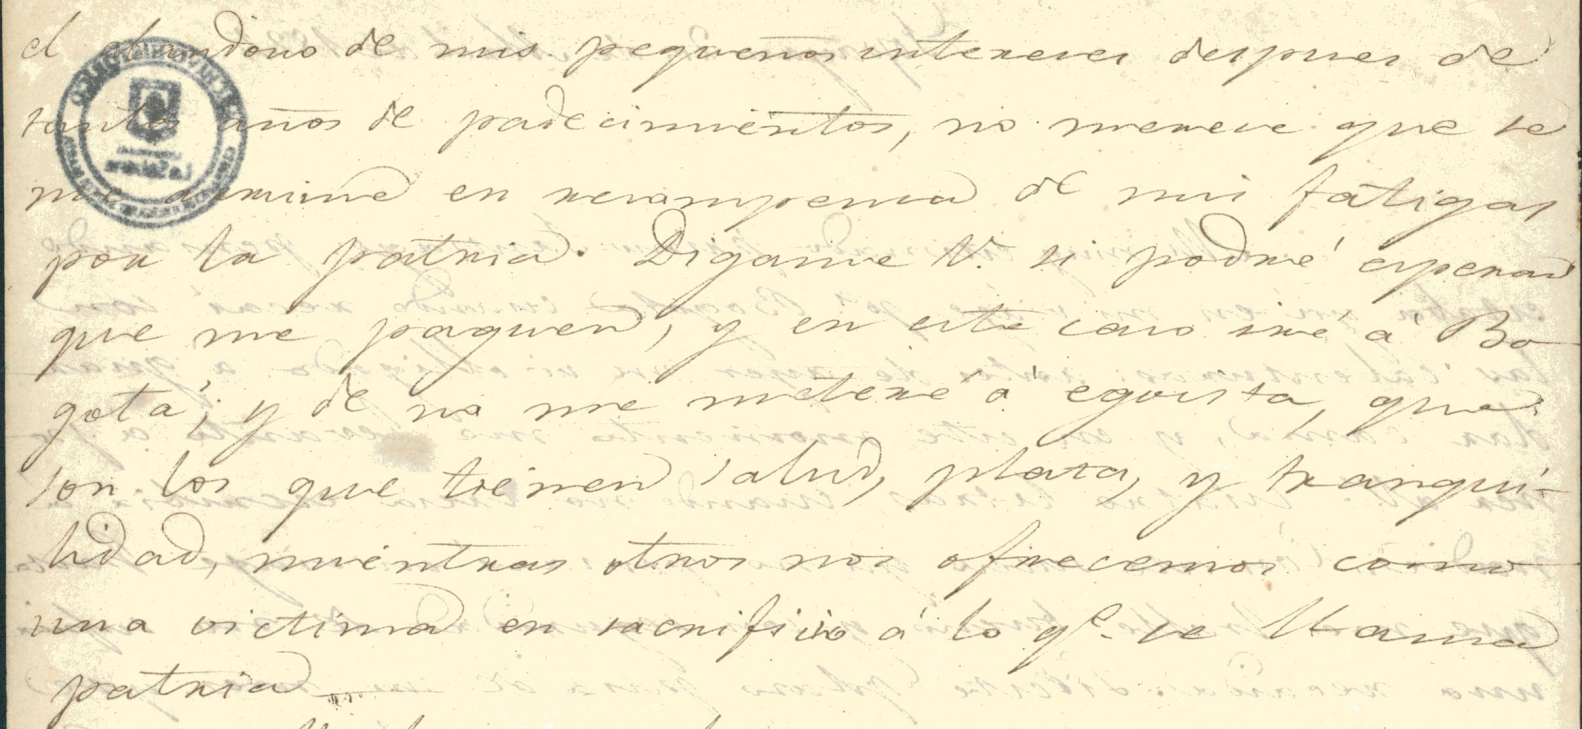 el abandono de mis pequeños intereses despues de
tantos años de padecimientos, no merece que se
me arruine en recompensa de mis fatigas
por la patria. Digame V. si podré esperar
que me paguen, y en este caso iré á Bo-
gotá; y de no me meteré á egoista, que
son los que tienen salud, plata, y tranqui-
lidad, mientras otros nos ofrecemos como
una victima en sacrificio á lo qe. se llama
patria